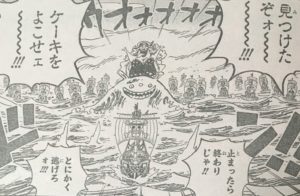 見つけた
ぞォ
〜〜〜!!!
オォオォオォ
ケーキを
よこせェ
〜〜〜!!!
止まったら
終わり
じゃ!!
とにかく
逃げろ
ォ!!!